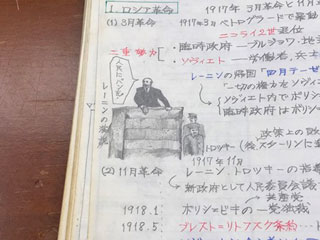 1. ロシア革命
1917年 3月革命と11月
(1) 3月革命
1917年3月 ペトログラードで暴動
ニコライ2世退位
二重権力
・臨時政府 ― ブルジョワ・地主
・ソヴィエト ― 労働者、兵士
人民にパンを
レーニンの帰国 「四月テーゼ
「一切の権力をソヴィ
ソヴィエト内でボリシ
臨時政府はボリ
レーニンの演説
政策上の
トロツキー (後 スターリンに
1917年11月
(2) 11月革命
レーニン、トロツキーの指導
新政府として人民委員会議
共産党
1918.1
ボリシェビキの一党独裁
1918.5
ブレスト=リトフスク条約